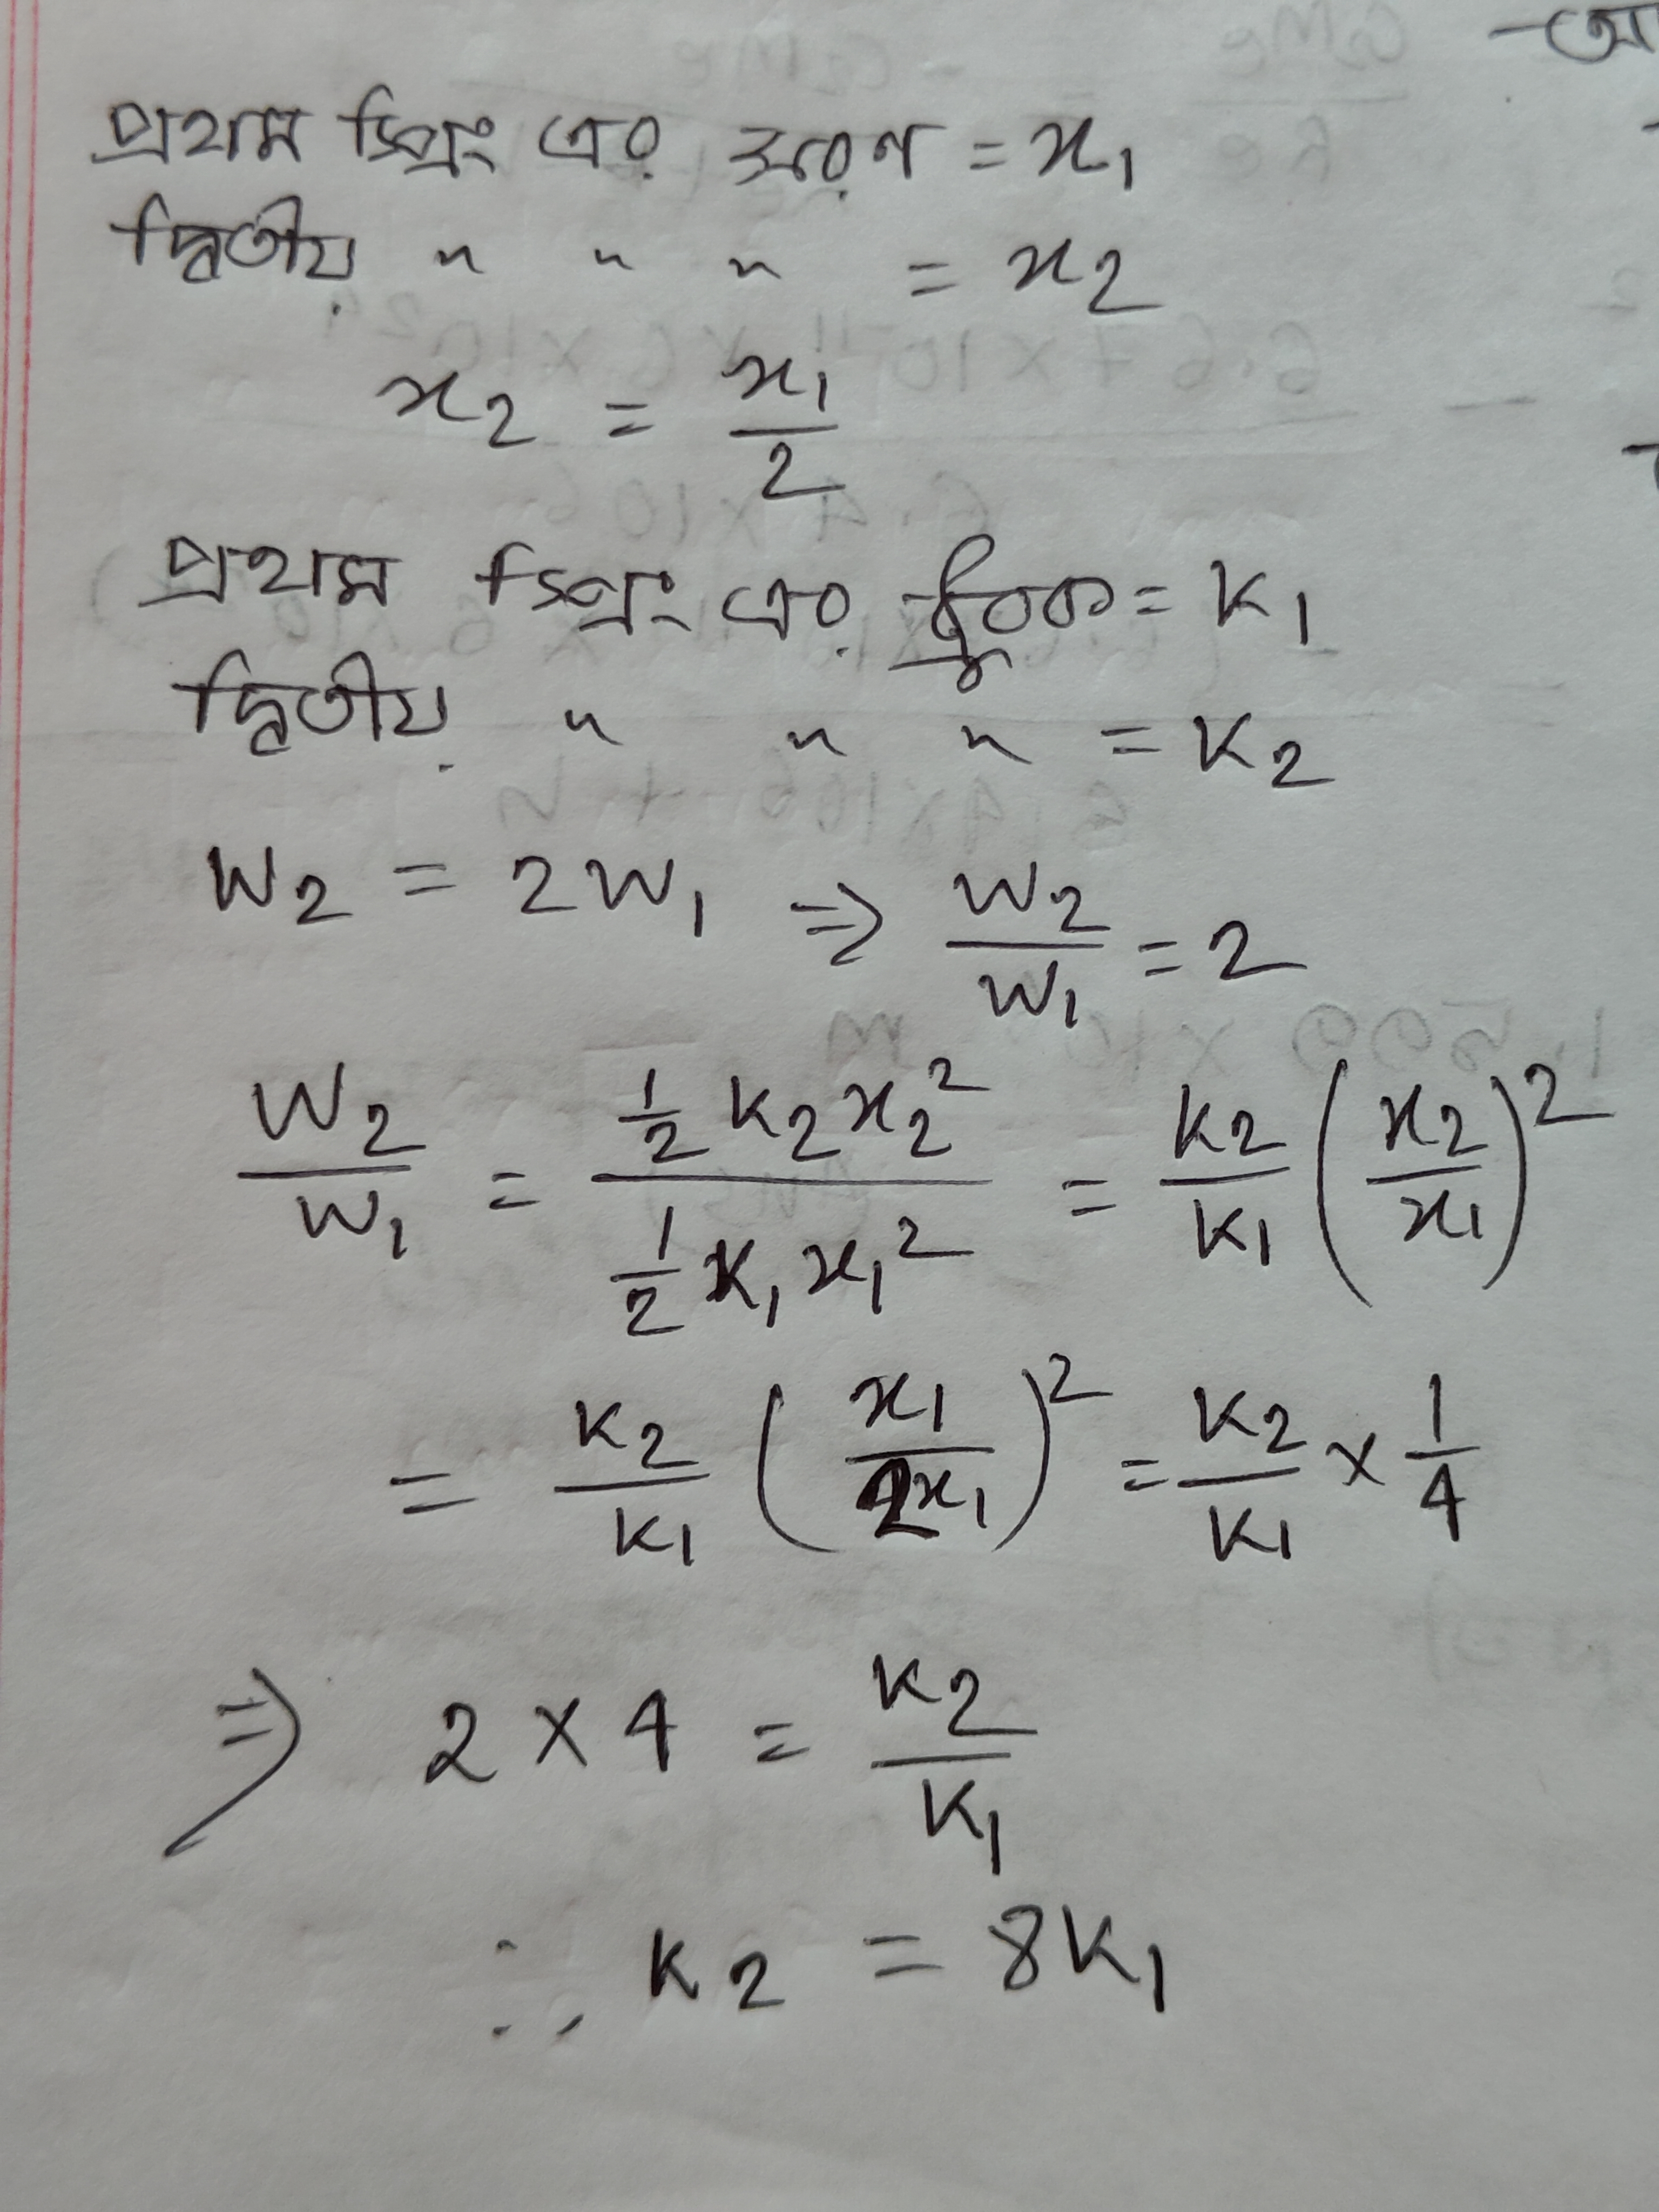 আ
প্রথম স্প্রিং এর সরণ = x₁
দ্বিতীয় " " " = x₂
x₂ = x₁/2
প্রথম স্প্রিং এর ধ্রুবক = K₁
দ্বিতীয় " " " = K₂
W₂ = 2W₁ ⇒ W₂/W₁ = 2
W₂/W₁ = (½ K₂x₂²)/(½ K₁x₁²) = K₂/K₁ (x₂/x₁)²
= K₂/K₁ (x₁/2x₁)² = K₂/K₁ × 1/4
⇒ 2 × 4 = K₂/K₁
∴ K₂ = 8K₁